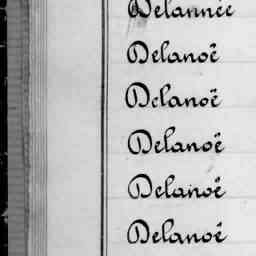 Delannée
Delanoë
Delanoë
Delanoë
Delanoë
Delanoë